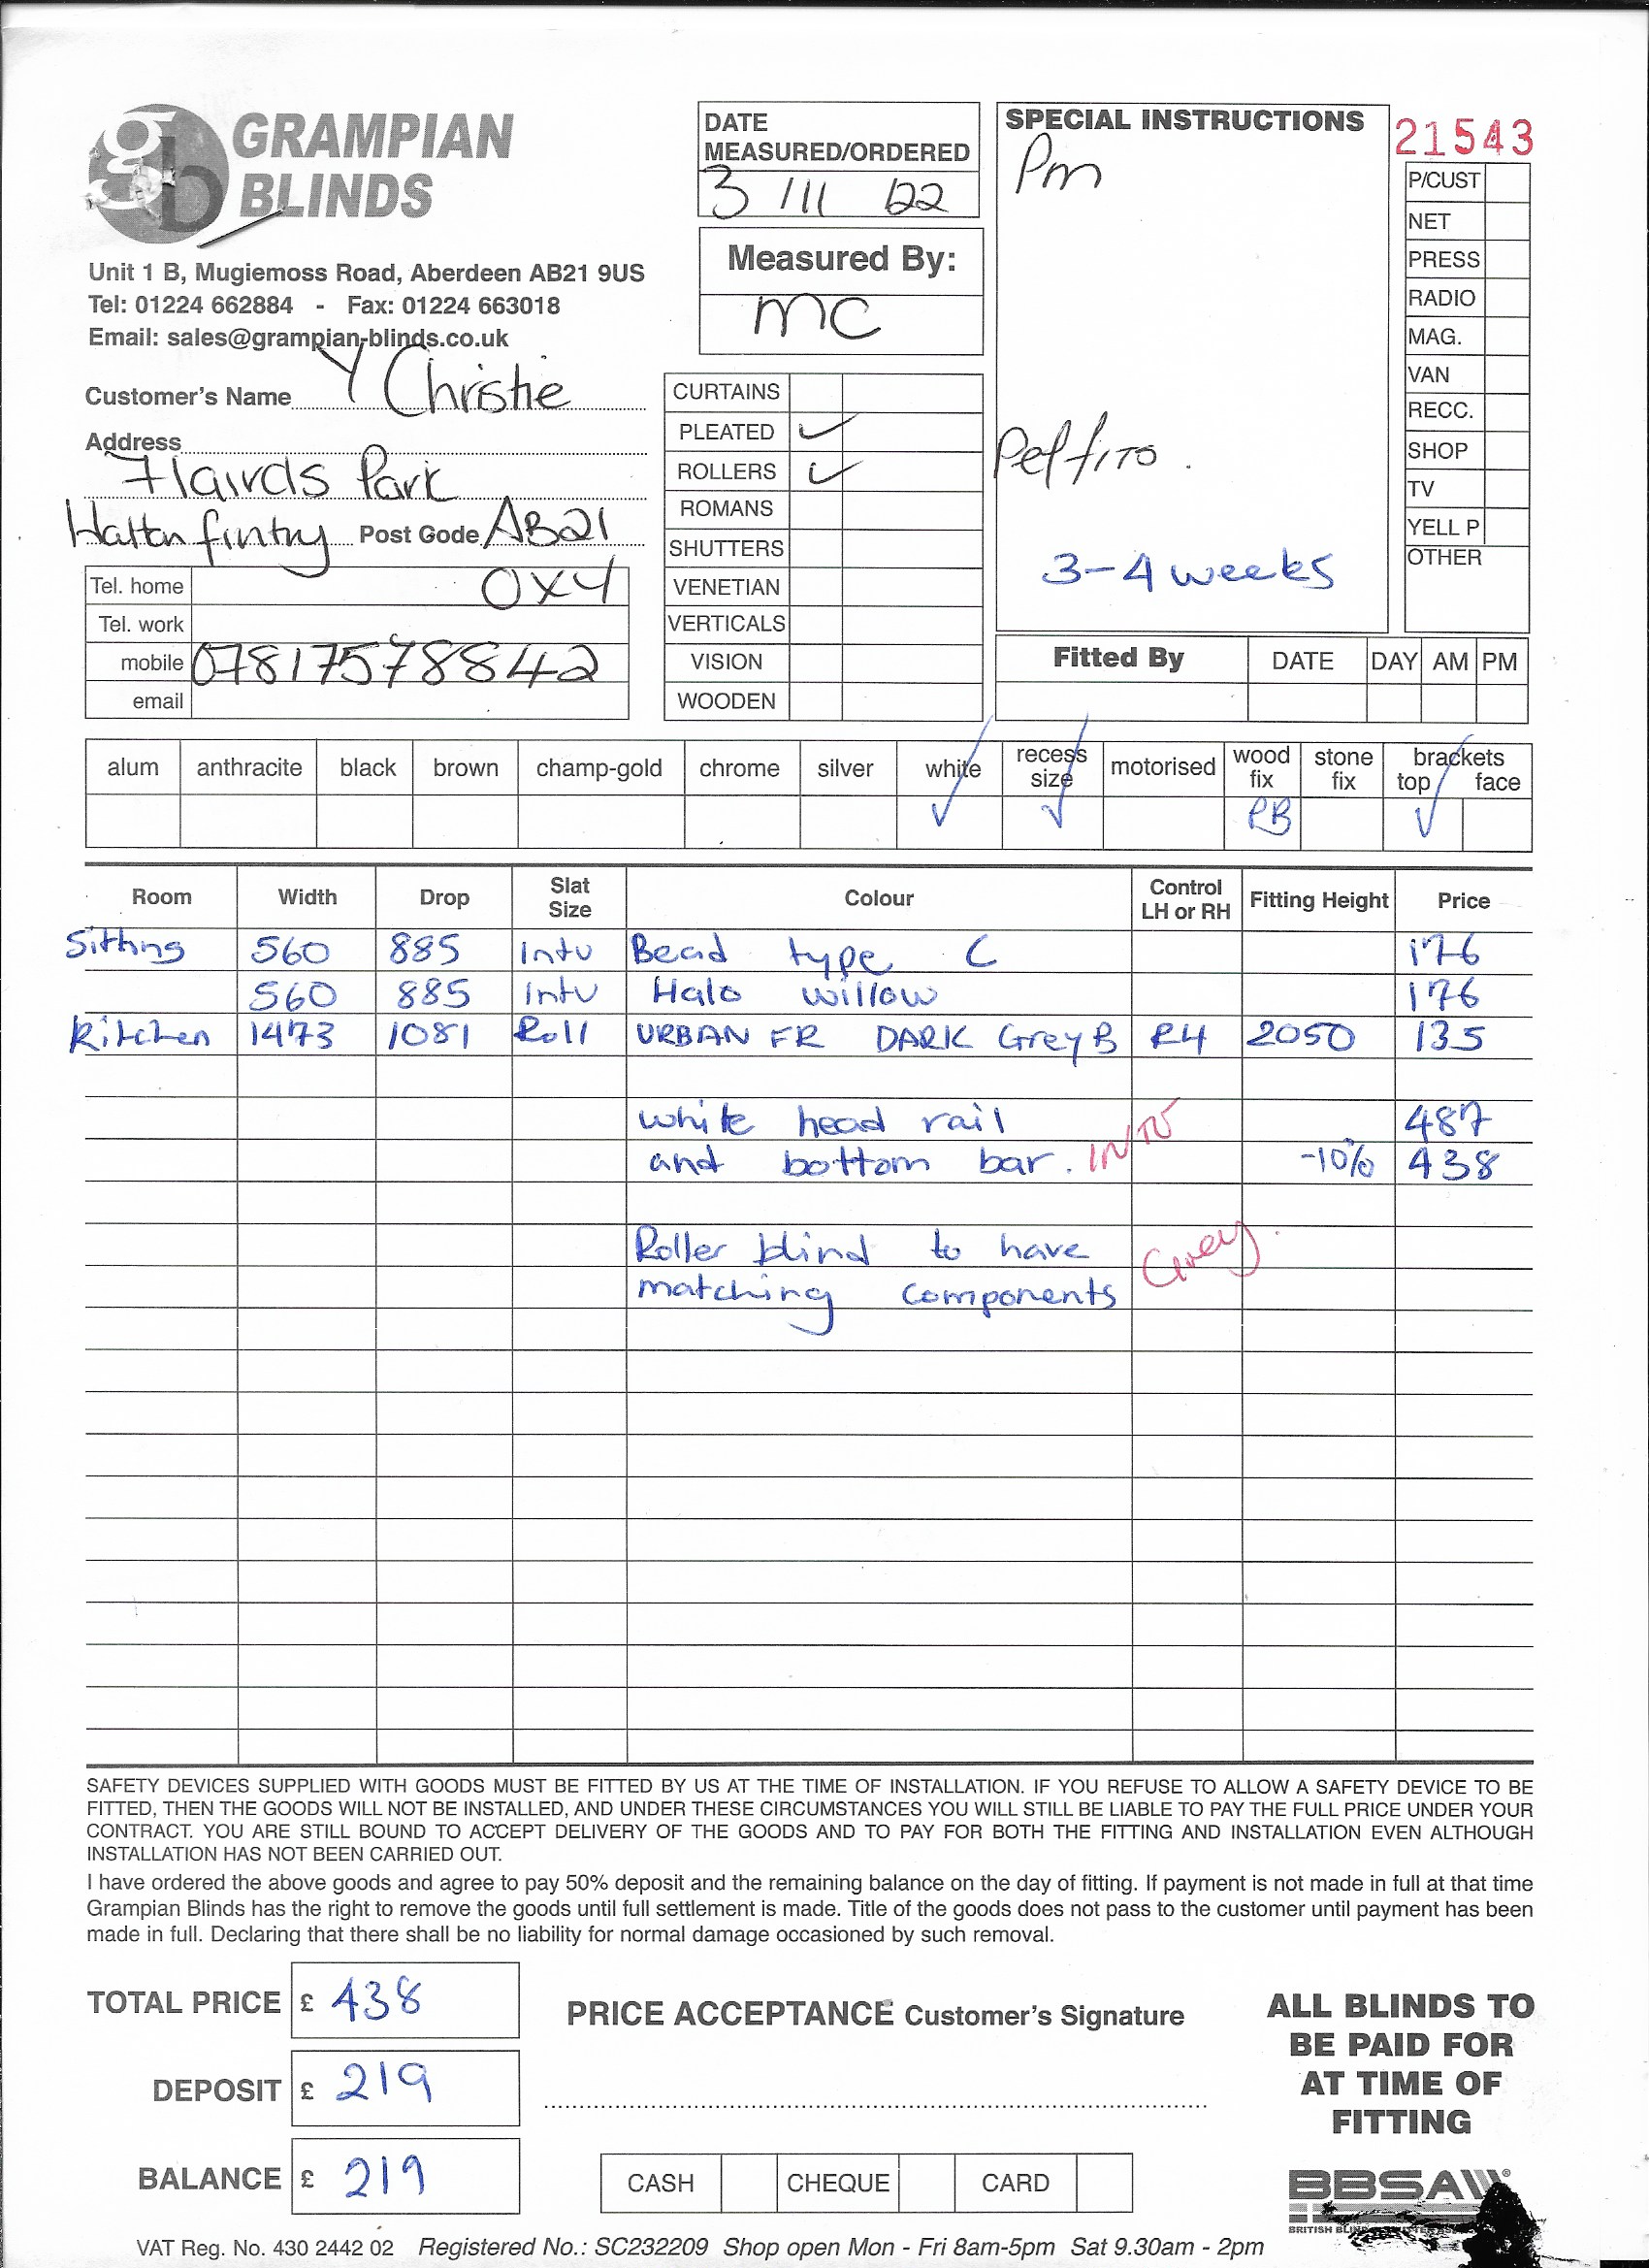 GRAMPIAN
BLINDS
Unit 1 B, Mugiemoss Road, Aberdeen AB21 9US
Tel: 01224 662884 - Fax: 01224 663018
Email: sales@grampian-blinds.co.uk
Customer's Name Y Christie
Address
7 lairds Park
Hatton fintry Post Code AB21
0X4
Tel. home
Tel. work
mobile 07817578842
email
DATE
MEASURED/ORDERED
3 /11 /22
Measured By:
MC
CURTAINS
PLEATED ✓
ROLLERS ✓
ROMANS
SHUTTERS
VENETIAN
VERTICALS
VISION
WOODEN
SPECIAL INSTRUCTIONS
Pm
3-4 weeks
21543
P/CUST
NET
PRESS
RADIO
MAG.
VAN
RECC.
SHOP
TV
YELL P
OTHER
Fitted By DATE DAY AM PM
alum anthracite black brown champ-gold chrome silver white recess size motorised wood fix stone fix brackets top face
✓ ✓ PB ✓
Room Width Drop Slat Size Colour Control LH or RH Fitting Height Price
Sitting 560 885 Intu Bead type C 176
560 885 Intu Halo willow 176
Kitchen 1473 1081 Roll URBAN FR DARK Grey B RH 2050 135
white head rail 487
and bottom bar. INTU -10% 438
Roller blind to have Grey.
matching components
SAFETY DEVICES SUPPLIED WITH GOODS MUST BE FITTED BY US AT THE TIME OF INSTALLATION. IF YOU REFUSE TO ALLOW A SAFETY DEVICE TO BE
FITTED, THEN THE GOODS WILL NOT BE INSTALLED, AND UNDER THESE CIRCUMSTANCES YOU WILL STILL BE LIABLE TO PAY THE FULL PRICE UNDER YOUR
CONTRACT. YOU ARE STILL BOUND TO ACCEPT DELIVERY OF THE GOODS AND TO PAY FOR BOTH THE FITTING AND INSTALLATION EVEN ALTHOUGH
INSTALLATION HAS NOT BEEN CARRIED OUT.
I have ordered the above goods and agree to pay 50% deposit and the remaining balance on the day of fitting. If payment is not made in full at that time
Grampian Blinds has the right to remove the goods until full settlement is made. Title of the goods does not pass to the customer until payment has been
made in full. Declaring that there shall be no liability for normal damage occasioned by such removal.
TOTAL PRICE £ 438
DEPOSIT £ 219
BALANCE £ 219
PRICE ACCEPTANCE Customer's Signature
CASH CHEQUE CARD
ALL BLINDS TO
BE PAID FOR
AT TIME OF
FITTING
BBSA
VAT Reg. No. 430 2442 02 Registered No.: SC232209 Shop open Mon - Fri 8am-5pm Sat 9.30am - 2pm